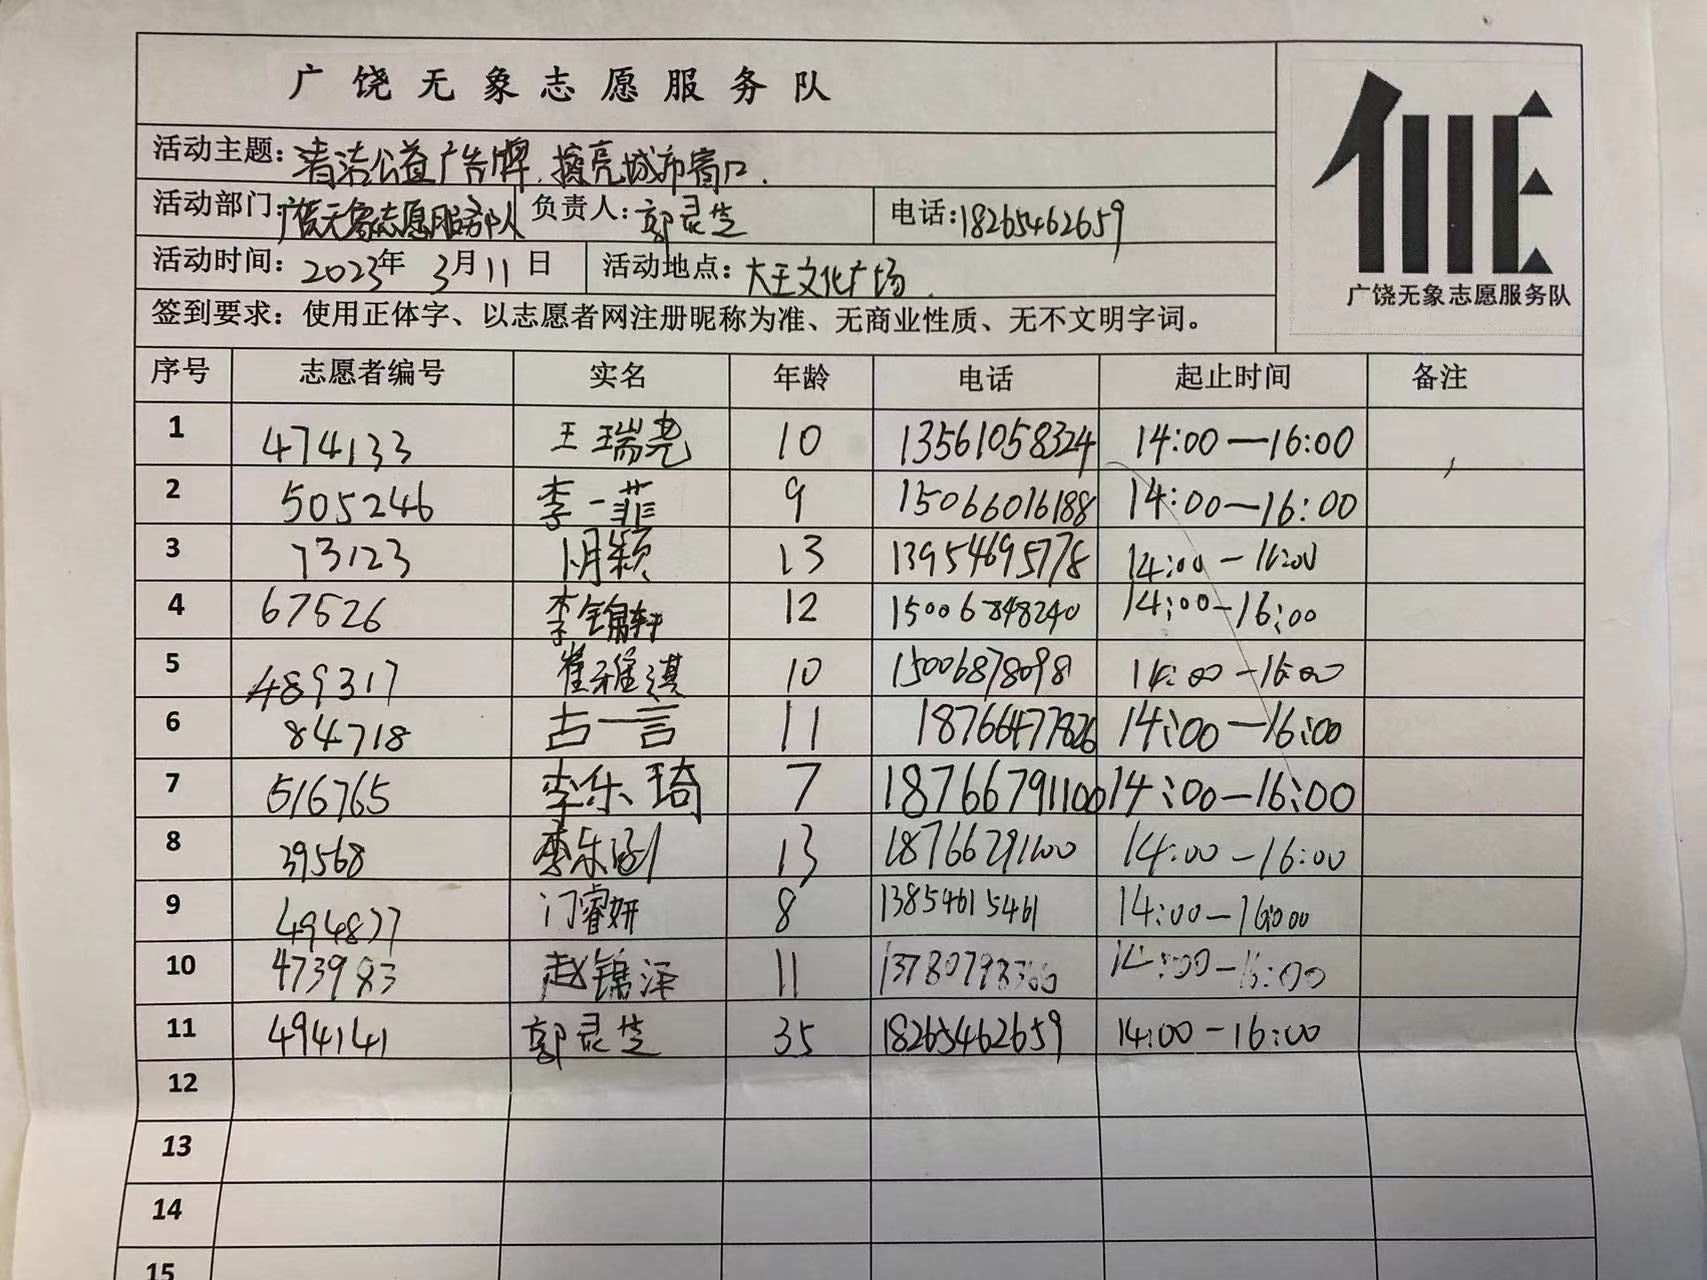 广饶无象志愿服务队
活动主题：清洁公益广告牌，擦亮城市窗口．
活动部门：广饶无象志愿服务队 负责人：郭灵芝 电话：18265462659
活动时间：2023年 3月11日 活动地点：大王文化广场．
广饶无象志愿服务队
签到要求：使用正体字、以志愿者网注册昵称为准、无商业性质、无不文明字词。
序号 志愿者编号 实名 年龄 电话 起止时间 备注
1 474133 王瑞尧 10 13561058324 14:00—16:00
2 505246 李一菲 9 15066016188 14:00—16:00
3 73123 颖 13 13954695778 14:00—16:00
4 67526 李锦轩 12 15006848240 14:00—16:00
5 489317 崔雅淇 10 15006878098 14:00—16:00
6 84718 古一言 11 18766477826 14:00—16:00
7 516765 李乐琦 7 18766791100 14:00—16:00
8 39568 李乐涵 13 18766791100 14:00—16:00
9 494877 门睿妍 8 13854615461 14:00—16:00
10 473983 赵锦泽 11 13780798360 14:00—16:00
11 494141 郭灵芝 35 18265462659 14:00—16:00
12
13
14
15